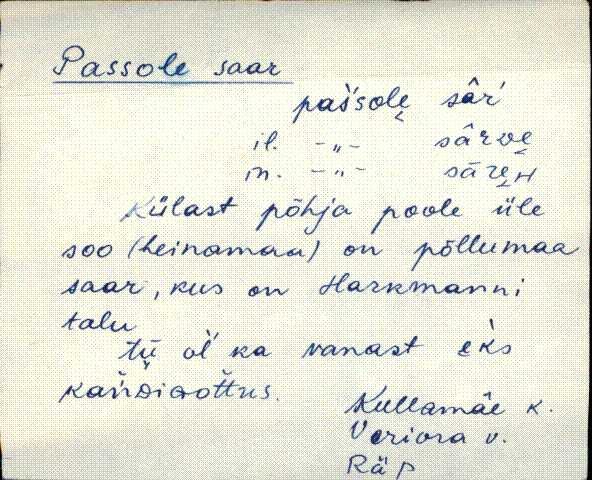 Passole saar
paśsole̬ sâŕ
il. -„- sârve̬
in. -„- säre̬н
Külast põhja poole üle
soo (heinamaa) on põllumaa
saar, kus on Harkmanni
talu
tü̬ ol' ka vanast eks
Kullamäe k.
Veriora v.
Räp